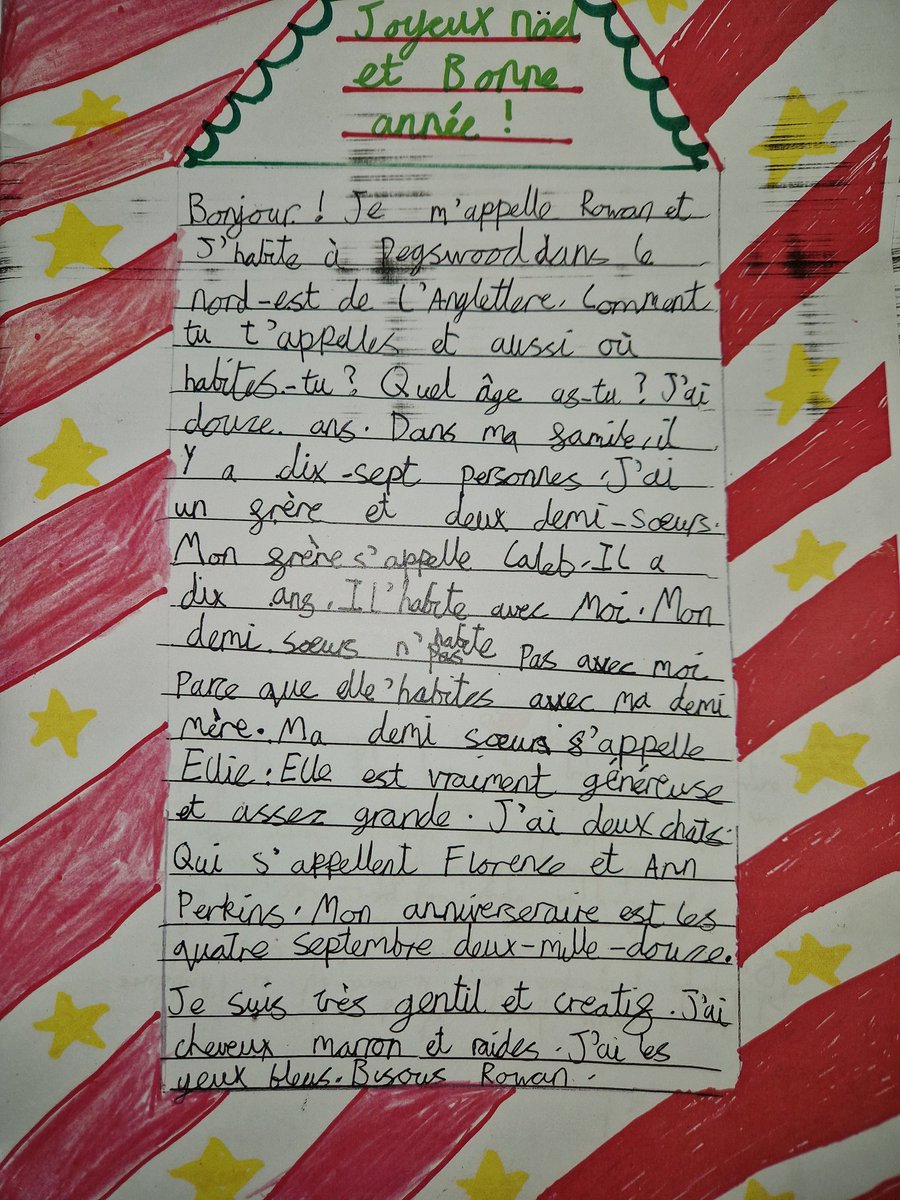 Joyeux nöel
et Bonne
année !
Bonjour ! Je m'appelle Rowan et
J'habite à Pegswood dans le
nord-est de l'Angletlere. Comment
tu t'appelles et aussi où
habites-tu ? Quel âge as-tu ? J'ai
douze ans. Dans ma famile, il
y a dix-sept personnes. J'ai
un frère et deux demi-sœurs.
Mon frère s'appelle Caleb. Il a
dix ans. Il l'habite avec moi. Mon
demi sœurs n'habite pas avec moi
parce que elle'habites avec ma demi
mère. Ma demi sœurs s'appelle
Ellie. Elle est vraiment généreuse
et assez grande. J'ai deux chats.
Qui s'appellent Florence et Ann
Perkins. Mon anniverseraire est les
quatre septembre deux-mille-douze.
Je suis très gentil et creatif. J'ai
cheveux marron et raides. J'ai les
yeux bleus. Bisous Rowan.